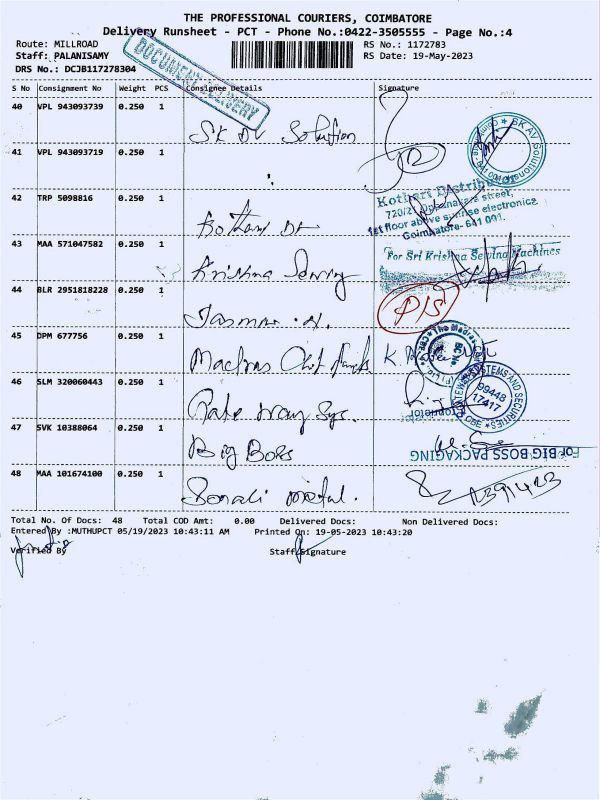 THE PROFESSIONAL COURIERS, COIMBATORE
Delivery Runsheet - PCT - Phone No.:0422-3505555 - Page No.:4
Route: MILLROAD RS No.: 1172783
Staff: PALANISAMY RS Date: 19-May-2023
DRS No.: DCJB117278304
DOCUMENT DELIVERY
S No Consignment No Weight PCS Consignee Details Signature
40 VPL 943093739 0.250 1
SK DV Solution
SK AV Solutions
41 VPL 943093719 0.250 1
Kothari Distributor
42 TRP 5098816 0.250 1
720/21, Oppanakara street,
1st floor above sunrise electronics
Coimbatore- 641 001.
Kothari Dr
43 MAA 571047582 0.250 1
For Sri Krishna Sewing Machines
Krishna Sewing
44 BLR 2951818228 0.250 1
P/S
45 DPM 677756 0.250 1
The Madras
Madras
46 SLM 320060443 0.250 1
SYSTEMS AND SECURITIES
99448
17417
CBE
Proprietor
47 SVK 10388064 0.250 1
Big Boss
For BIG BOSS PACKAGING
48 MAA 101674100 0.250 1
Sonali Metal.
Total No. Of Docs: 48 Total COD Amt: 0.00 Delivered Docs: Non Delivered Docs:
Entered By :MUTHUPCT 05/19/2023 10:43:11 AM Printed On: 19-05-2023 10:43:20
Verified By Staff Signature